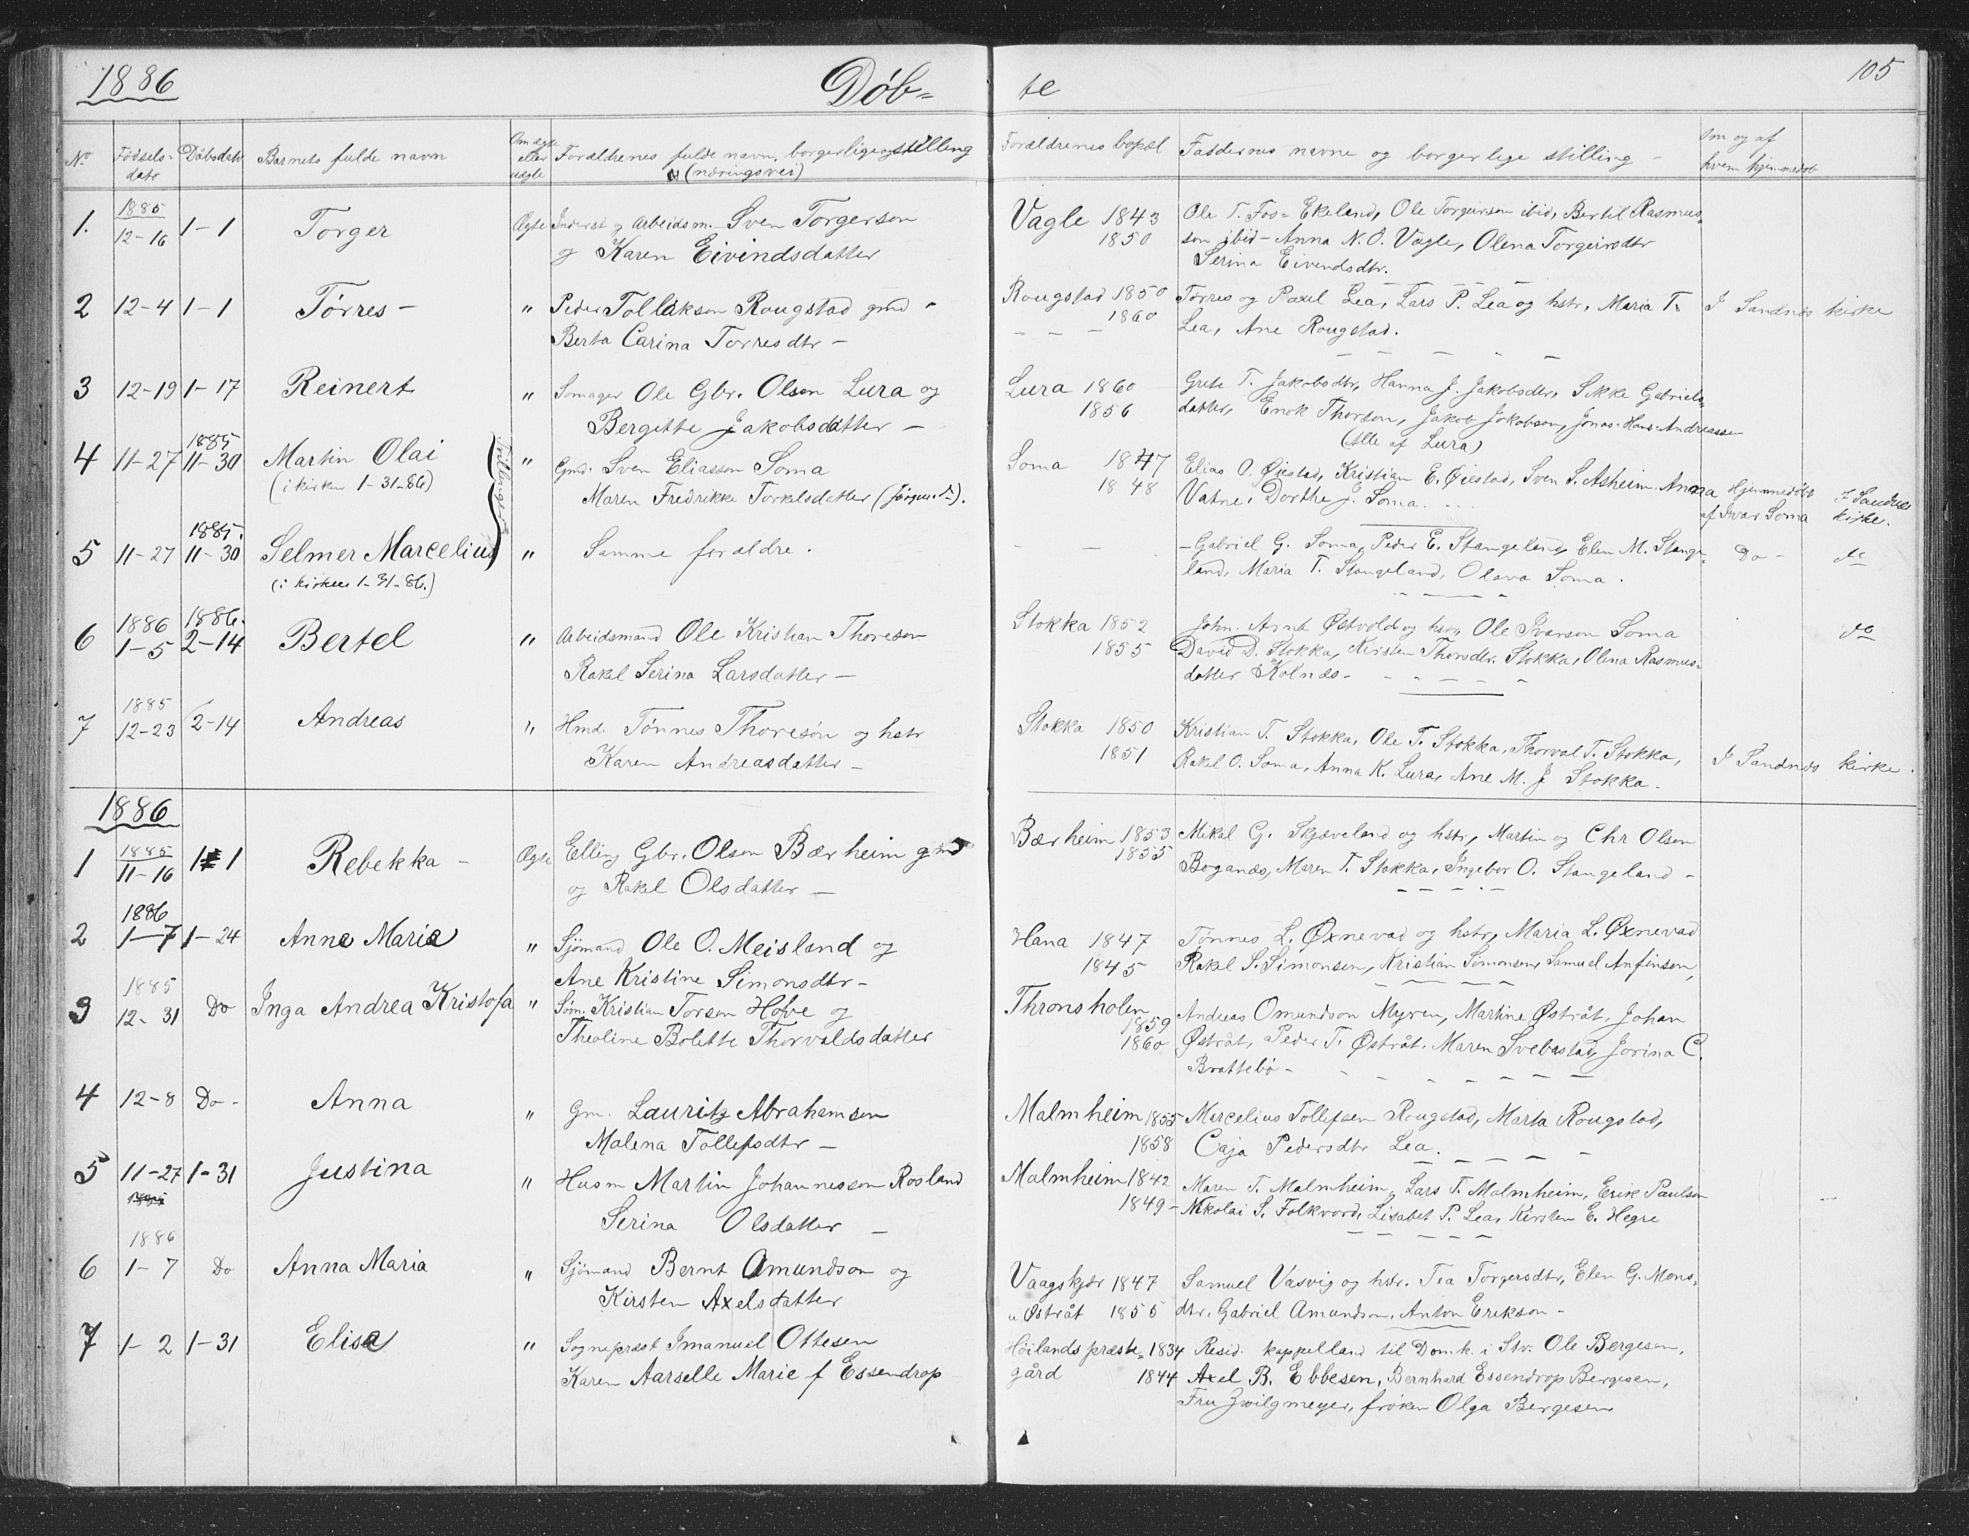 1886 Døb- te 105
No Fødsels- dato Døbsdato Barnets fulde navn Om ægte eller uægte Forældrenes fulde navn, borgerlige stilling (næringsvei) Forældrenes bopæl Faddernes navne og borgerlige stilling - Om og af hvem hjemmedøbt
1. 1885 12-16 1-1 Torger Ægte Inderst og Arbeidsm. Sven Torgerson Vagle 1843 Ole T. Fos- Ekeland, Ole Torgeirson ibid, Bertil Rasmus-
og Karen Eivindsdatter 1850 son ibid - Anna N. O. Vagle, Olena Torgeirsdtr
Serina Eivendsdtr.
2 12-4 1-1 Tørres - " Peder Tollakson Rougstad gmd - Rougstad 1850 Tørres og Paxel Lea, Lars P. Lea og hstr, Maria T. I Sandnes kirke
Berta Carina Torresdtr - - - - 1860 Lea, Ane Rougstad.
3 12-19 1-17 Reinert " Somager Ole Gbr. Olson Lura og Lura 1860 Grete T. Jakobsdtr, Hanna J. Jakobsdtr, Sikke Gabriels-
Bergitte Jakobsdatter - 1856 datter, Enok Thorson, Jakob Jakobson, Jonas Hans Andreassen
(Alle af Lura)
4 11-27 1885 11-30 Martin Olai Tvillinger " Gmd. Sven Eliasson Soma Soma 1847 Elias O. Øiestad, Kristian E. Øiestad, Sven S. Asheim, Anna Hjemmedøbt I Sandnes
(i kirken 1-31-86) Maren Fredrikke Torkelsdatter (Jørgensd-). 1848 Vatne, Dorthe J. Soma. af Ivar Soma kirke.
5 11-27 1885. 11-30 Selmer Marcelius " Samme forældre. - - - - Gabriel G. Soma, Peder E. Stangeland, Elen M. Stange- Do - do
(i kirken 1-31-86.) land, Maria T. Stangeland, Olava Soma.
6 1886 1-5 1886. 2-14 Bertel " Arbeidsmand Ole Kristian Thoreson Stokka 1852 John Arnt Østvold og hstr, Ole Ivarson Soma do
Rakel Serina Larsdatter - 1855 David D. Stokka, Kirsten Thorsdtr. Stokka, Olena Rasmus-
datter Kolnes -
7 1885 12-23 2-14 Andreas " Hmd Tønnes Thoreson og hstr Stokka 1850 Kristian T. Stokka, Ole T. Stokka, Thorval T. Stokka,
Karen Andreasdatter - 1851 Rakel O. Soma, Anna K. Lura, Ane M. J Stokka. I Sandnes kirke.
1886
1 1885 11-16 1-1 Rebekka - Ægte Elling Gbr. Olson Bærheim gmd Bærheim 1853 Mikal G. Skjæveland og hstr, Martin og Chr Olson
og Rakel Olsdatter - 1855 Boganæs, Maren T. Stokka, Ingebor O. Stangeland -
2 1886 1-7 1-24 Anne Marie " Sjömand Ole O. Meisland og Hana 1847 Tønnes L. Øxnevad og hstr, Maria L. Øxnevad
Ane Kristine Simonsdtr - 1845 Rakel S. Simonsen, Kristian Simonsen, Samuel Anfinsen,
3 1885 12-31 Do Inga Andrea Kristofa " Søm. Kristian Torsen Hove og Thronsholen 1859 Andreas Omundson Myren, Martine Østråt, Johan
Theoline Bolette Thorvaldsdatter 1860 Østråt, Peder T. Østråt, Maren Svebestad, Jorina C.
Brattebö -
4 12-8 Do - Anna " Gm. Lauritz Abrahamsen Malmheim 1855 Marcelius Tollefsen Rougstad, Marta Rougstad,
Malena Tollefsdtr - 1858 Caja Pedersdtr Lea.
5 11-27 1-31 Justina " Husm Martin Johannesson Rosland Malmheim 1842 Maren T. Malmheim, Lars T. Malmheim, Erik Paulsen
Serina Olsdatter - 1849 - Nikolai S. Folkvord, Lisabet P. Lea, Kirsten E. Hegre
6 1886 1-7 Do Anna Maria " Sjömand Bernt Omundson og Vaagskjær 1847 Samuel Vasvig og hstr. Tea Torgersdtr, Elen G. Mons-
Kirsten Axelsdatter u Østråt 1855 dtr. Gabriel Amundson, Anton Erikson -
7 1-2 1-31 Elise " Sogneprest Imanuel Ottesen Höilands præste- 1834 Resid. kappelland til Domk. i Stv. Ole Bergesen,
Karen Aarselle Marie f Essendrop gård 1844 Axel B. Ebbesen, Bernhard Essendrop Bergesen,
Fru Zwilgmeyer, frøken Olga Bergesen